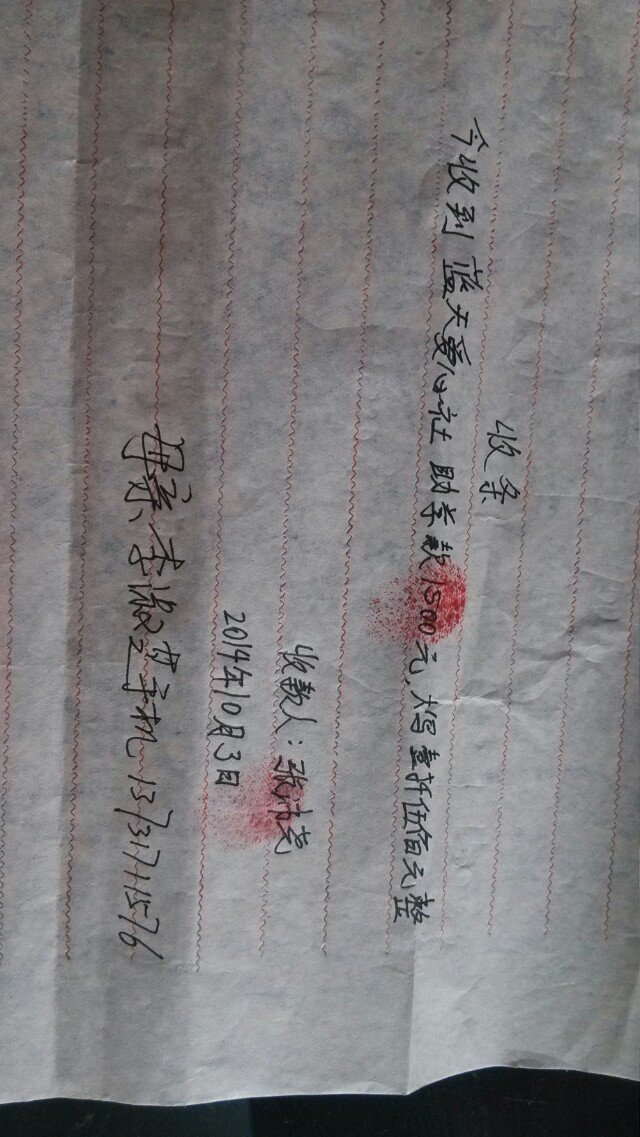 收条
今收到 蓝天爱心社 助学款1500元,大写壹仟伍佰元整
收款人:张沛尧
2014年10月3日
母亲:李淑 手机 13731711576